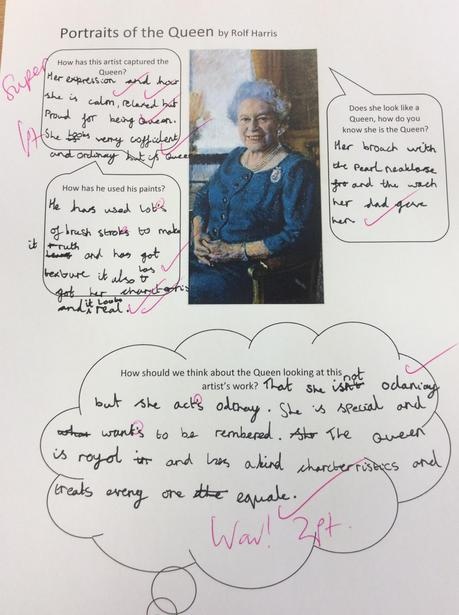 Portraits of the Queen by Rolf Harris
Super
1pt
How has this artist captured the
Queen?
Her expression and how
she is calm, relaxed but
Proud for being Queen.
She looks verry cofficient
and ordinary but is Queen
Does she look like a
Queen, how do you
know she is the Queen?
Her broach with
the Pearl necklase
and the wach
her dad gave
her
How has he used his paints?
He has used lots
of brush stroks to make
it Truth
and has got
texture it also has
got her
and it Looks real.
How should we think about the Queen looking at this
artist's work? That she is not
but she acts odinay. She is special and
wants to be rembered. The Queen
is royal and has a kind charcterristics and
treats eveng one equale.
Wow! 2pt.